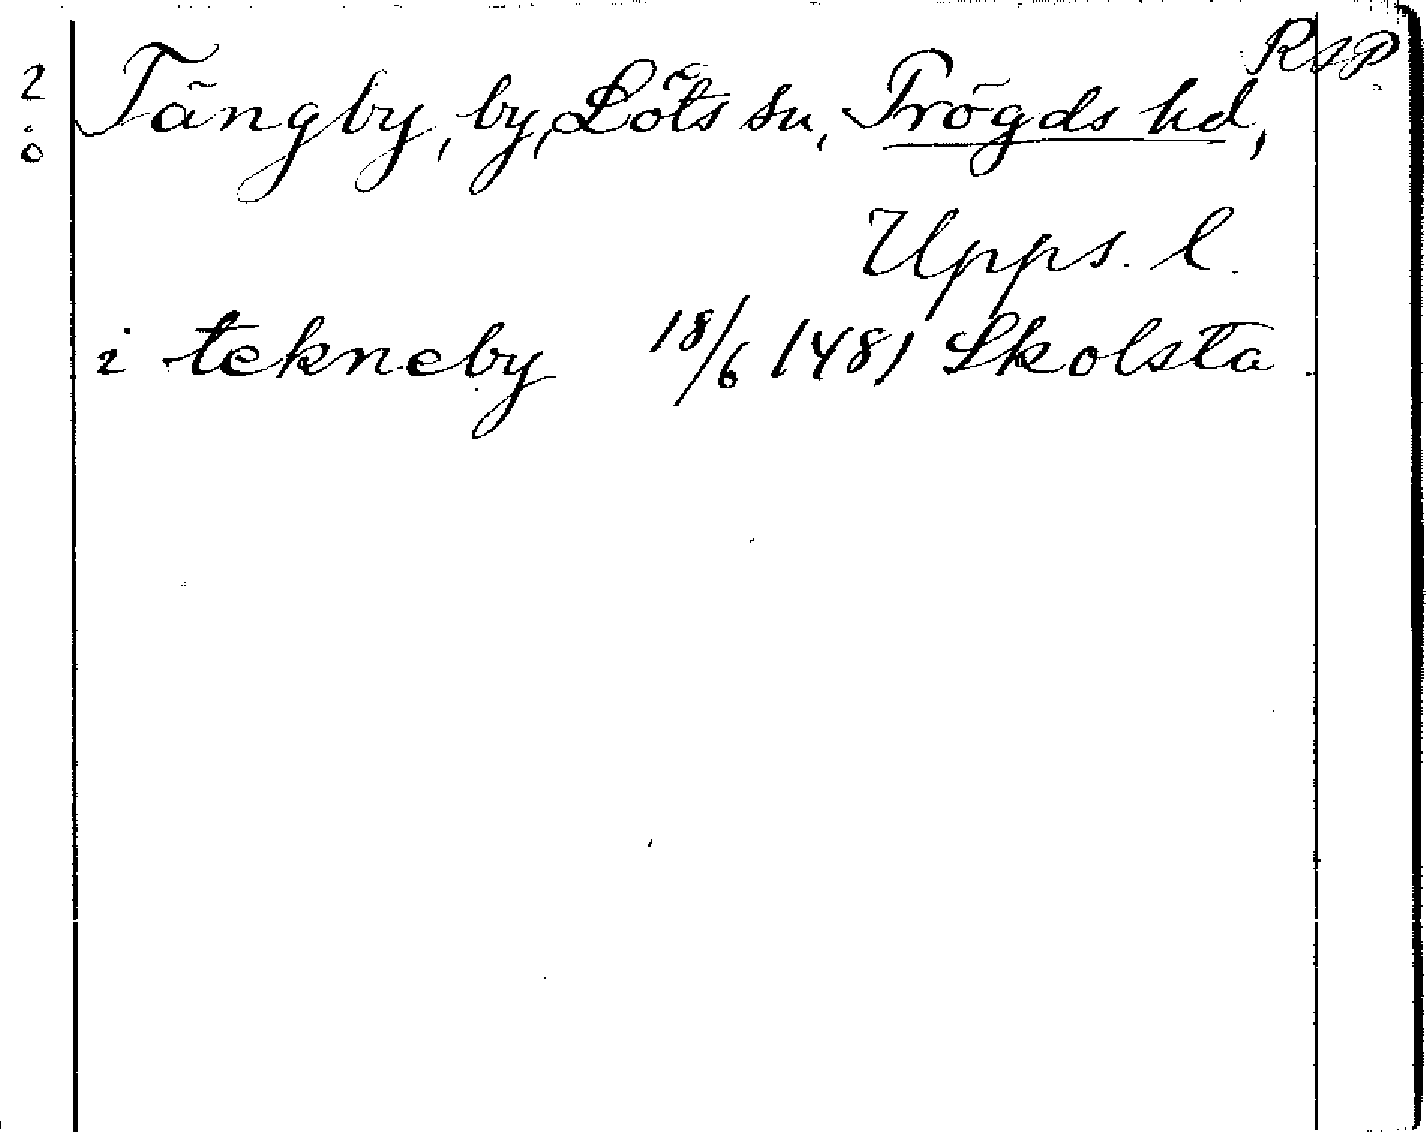 RAP
2:o Tängby, by, Löts sn, Trögds hd,
Upps. l.
i tekneby 18/6 1481 Skolsta